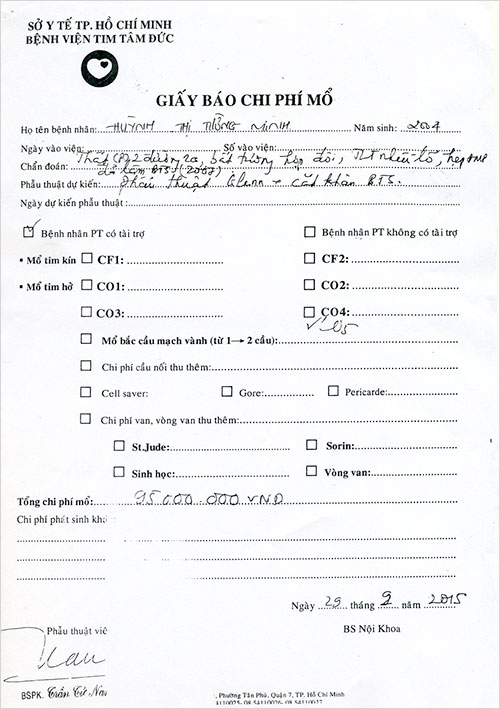 SỞ Y TẾ TP. HỒ CHÍ MINH
BỆNH VIỆN TIM TÂM ĐỨC
GIẤY BÁO CHI PHÍ MỔ
Họ tên bệnh nhân: HUỲNH THỊ HỒNG MINH Năm sinh: 2004
Ngày vào viện: Số vào viện:
Chẩn đoán: Thất (P) 2 đường ra, bất tương hợp đôi, TLT nhiều lỗ, hẹp ĐMP
đã làm BTS (2007)
Phẫu thuật dự kiến: Phẫu thuật Glenn + cắt khâu BTS.
Ngày dự kiến phẫu thuật:
Bệnh nhân PT có tài trợ Bệnh nhân PT không có tài trợ
• Mổ tim kín CF1: CF2:
• Mổ tim hở CO1: CO2:
CO3: CO4:
05
Mổ bắc cầu mạch vành (từ 1→ 2 cầu):
Chi phí cầu nối thu thêm:
Cell saver: Gore: Pericarde:
Chi phí van, vòng van thu thêm:
St.Jude: Sorin:
Sinh học: Vòng van:
Tổng chi phí mổ: 95 000 000 VNĐ
Chi phí phát sinh
Ngày 29 tháng 9 năm 2015
Phẫu thuật BS Nội Khoa
BSPK. Trần Cử
, Phường Tân Phú, Quận 7, TP. Hồ Chí Minh